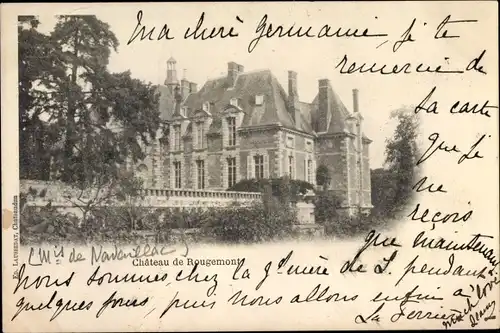 Ma chère Germaine, je te
remercie de
la carte
que je
ne
reçois
que maintenant
(Mis de Nadaillac)
Château de Rougemont
Ed. Latssenat, Châteaudun
Nous sommes chez la gd mère de S. pendant
quelques jours, puis nous allons enfin à
la Ferrière